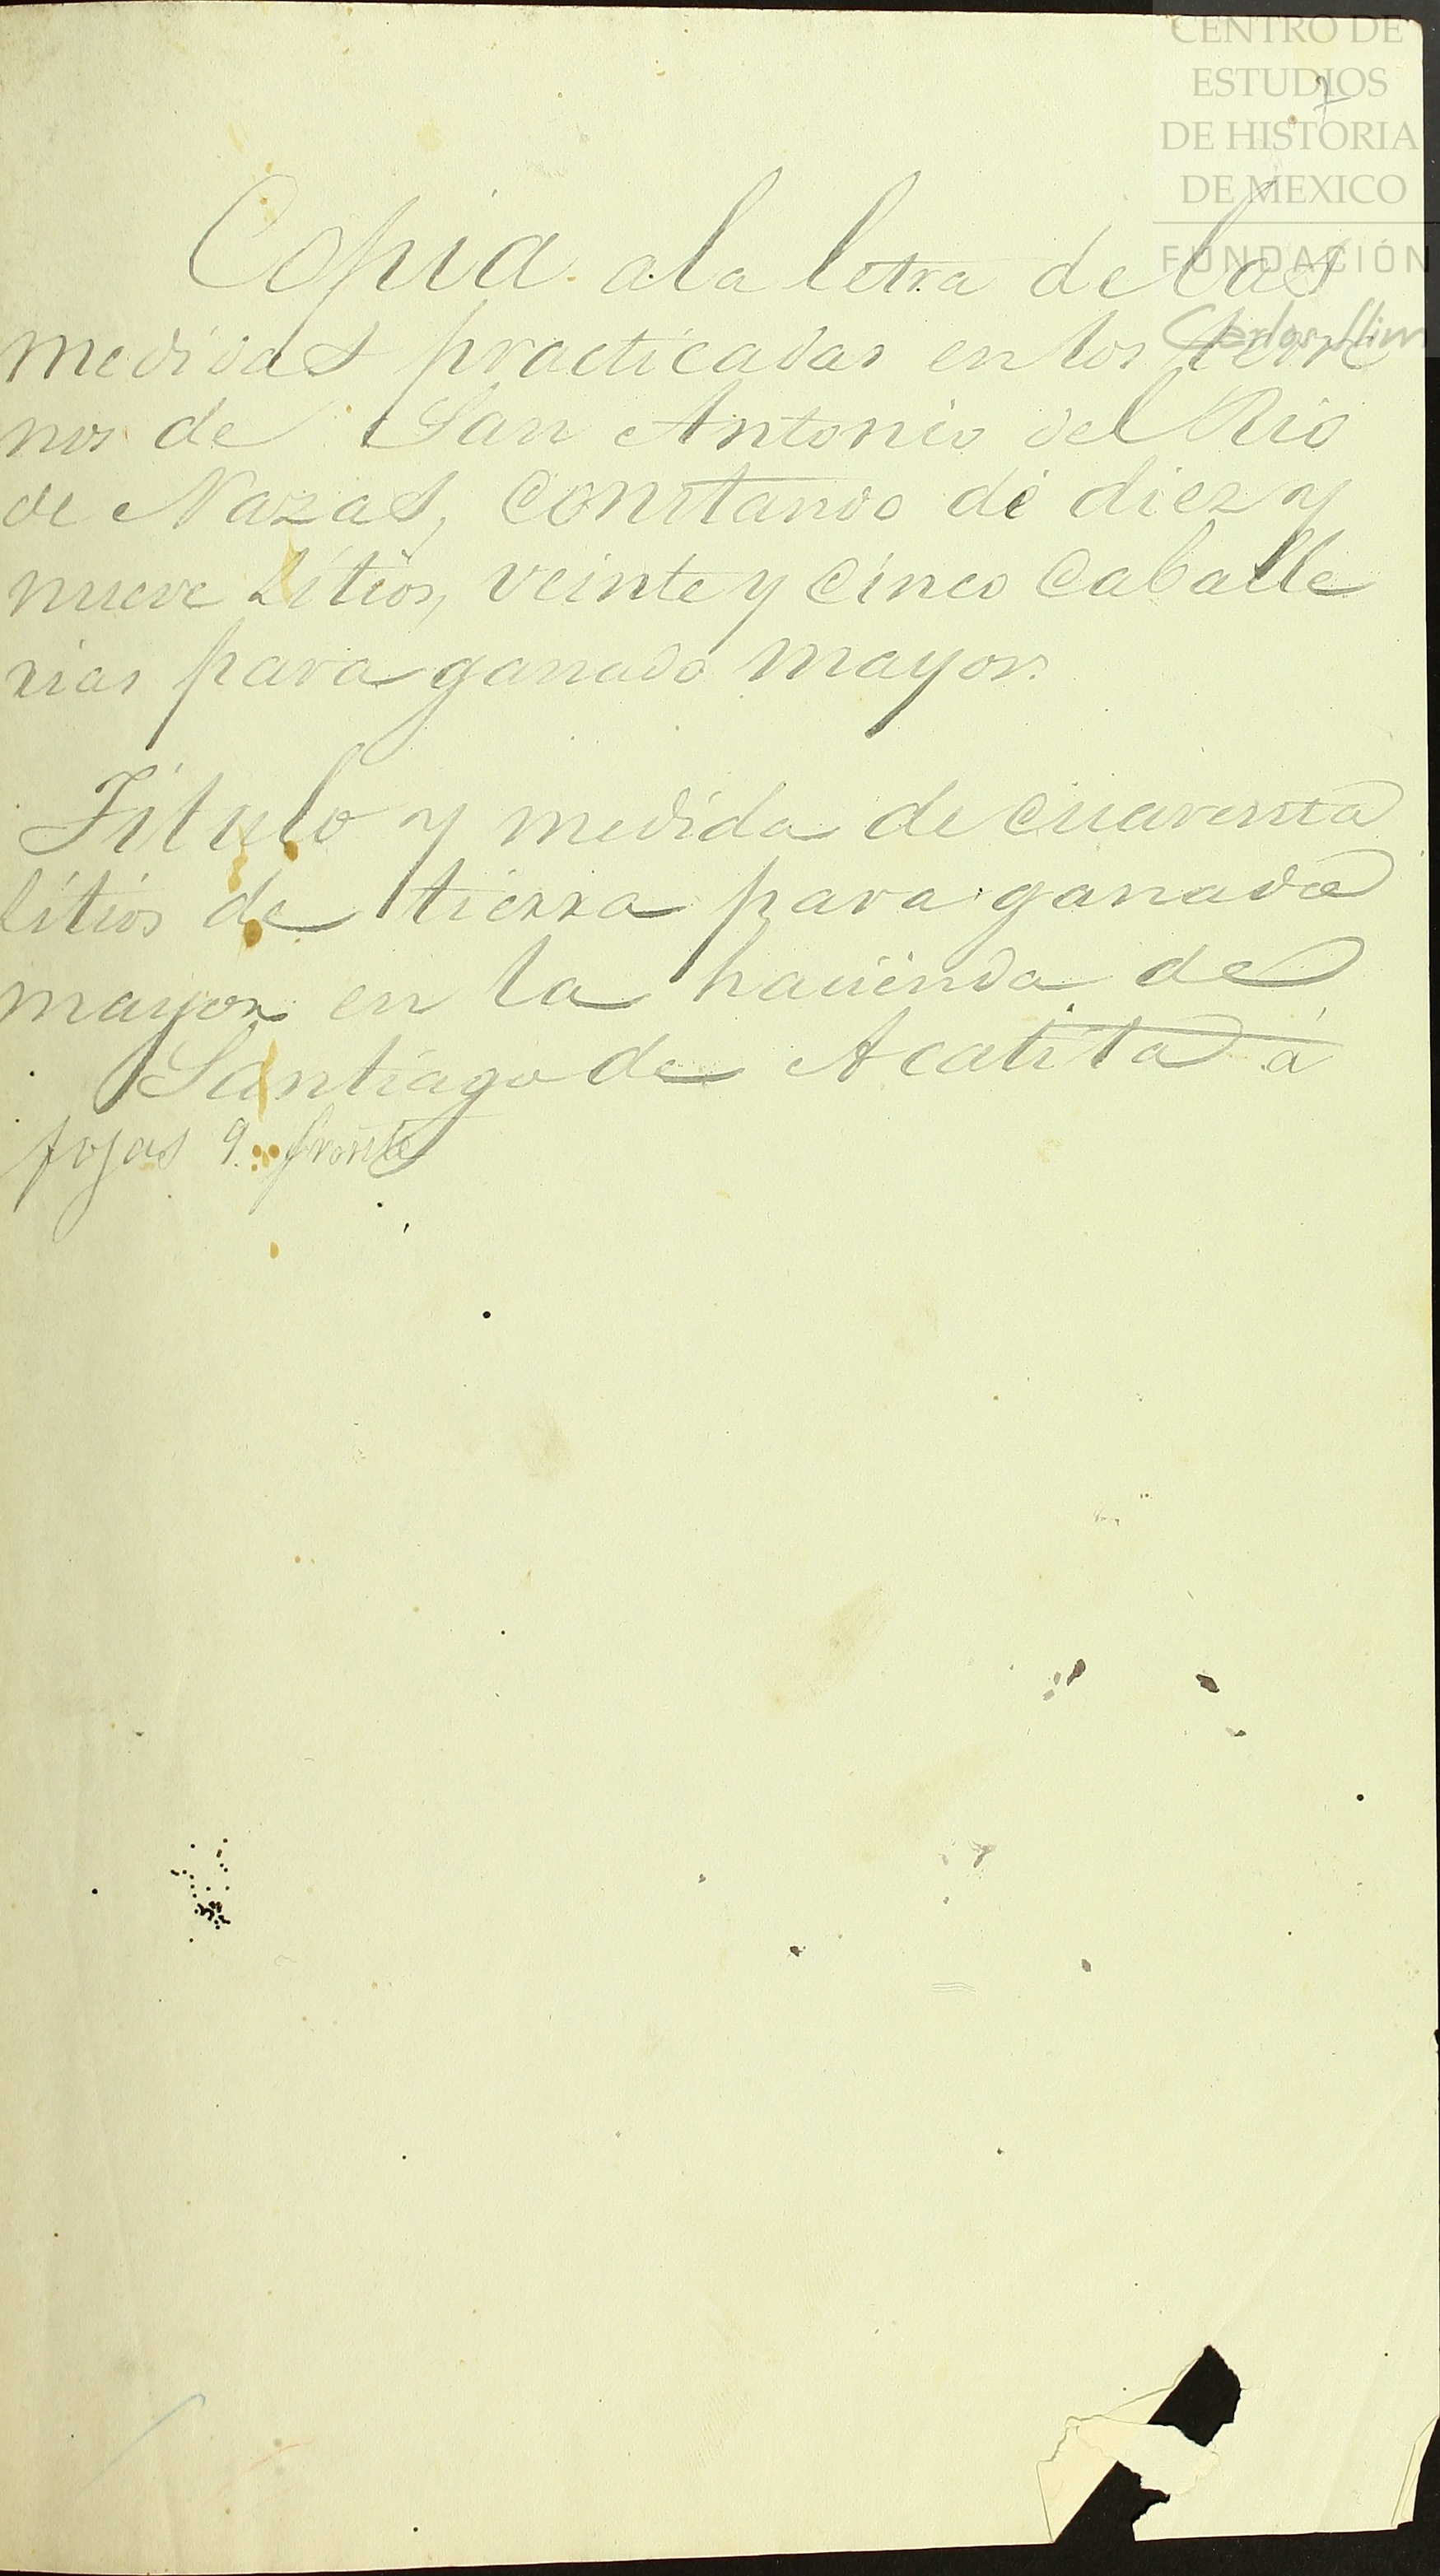 CENTRO DE
ESTUDIOS
DE HISTORIA
DE MEXICO
FUNDACIÓN
Carlos Slim
7
Copia a la letra de las
medidas practicadas en los terre
nos de San Antonio del Rio
de Nazas, constando de diez y
nueve Sitios, veinte y cinco caballe
rias para ganado mayor.
Titulo y medida de cuarenta
sitios de tierra para ganado
mayor en la hacienda de
Santiago de Acatita á
fojas 9. frente